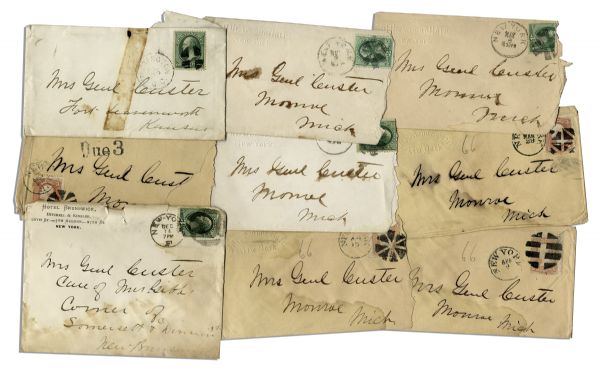 Mrs Genl Custer
Fort Leavenworth
Kansas
NEW YORK
Mrs Genl Custer
Monroe
Mich
NEW YORK
MAR
Mrs Genl Custer
Monroe
Mich
Due 3
Mrs Genl Cust
Mo
Mrs Genl Custer
Monroe
Mich
99
NEW
MAR
Mrs Genl Custer
Monroe
Mich
HOTEL BRUNSWICK,
NEW YORK.
NEW YORK
DEC
7 PM
Mrs Genl Custer
Care of
Corner of
Somerset &
New
99
Mrs Genl Custer
Monroe
Mich
99
NEW YORK
Mrs Genl Custer
Monroe
Mich